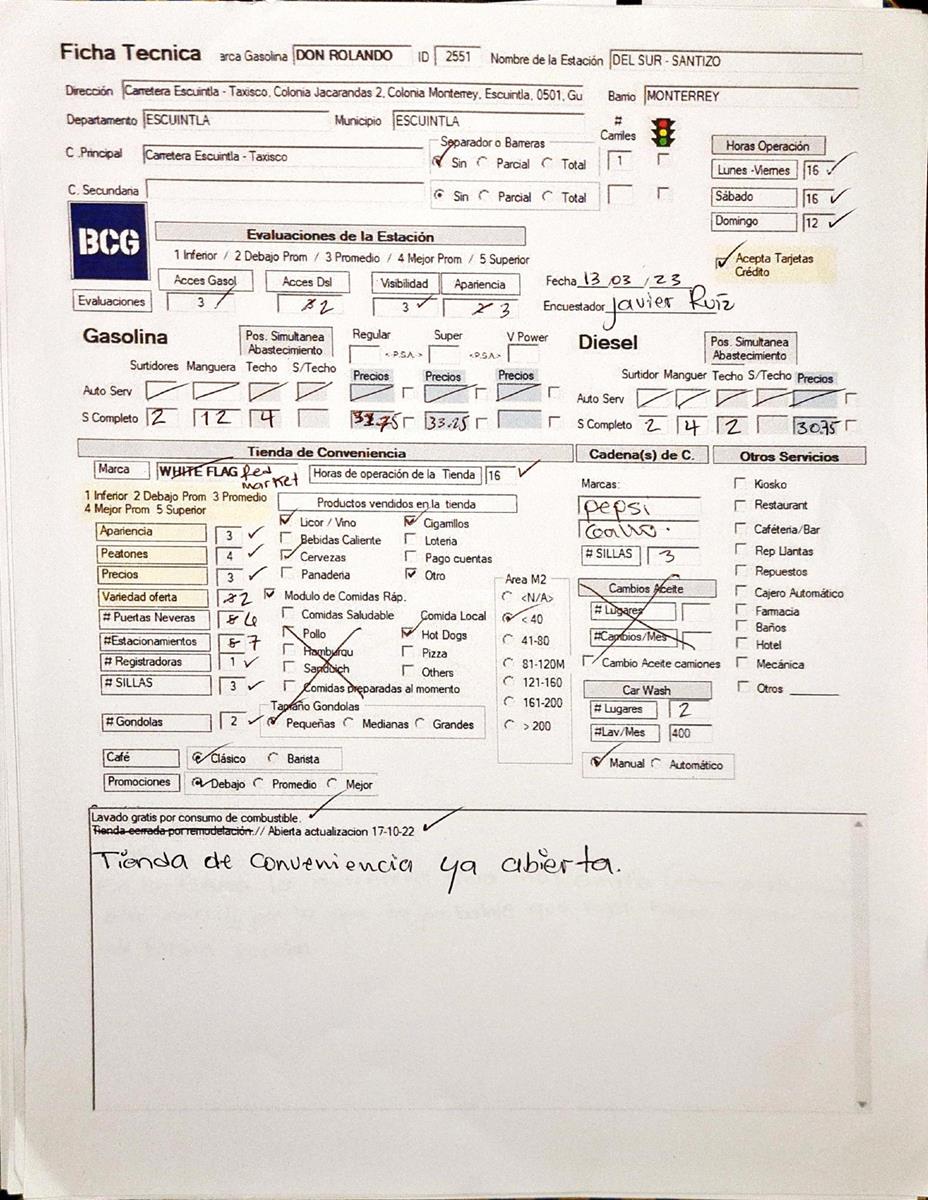 Ficha Tecnica arca Gasolina DON ROLANDO ID 2551 Nombre de la Estación DEL SUR - SANTIZO
Dirección Carretera Escuintla - Taxisco, Colonia Jacarandas 2, Colonia Monterrey, Escuintla, 0501, Gu Barrio MONTERREY
Departamento ESCUINTLA Municipio ESCUINTLA # Carriles
C .Principal Carretera Escuintla - Taxisco Separador o Barreras Sin Parcial Total 1
C. Secundaria Sin Parcial Total
Horas Operación
Lunes -Viernes 16
Sábado 16
Domingo 12
BCG
Evaluaciones de la Estación
1 Inferior / 2 Debajo Prom / 3 Promedio / 4 Mejor Prom / 5 Superior
Acepta Tarjetas Crédito
Acces Gasol Acces Dsl Visibilidad Apariencia Fecha 13/03/23
Evaluaciones 3 2 3 3 Encuestador Javier Ruiz
Gasolina Pos. Simultanea Abastecimiento Regular Super V Power
<-P.S.A.-> <-P.S.A.->
Surtidores Manguera Techo S/Techo Precios Precios Precios
Auto Serv
S Completo 2 12 4 33.25
Diesel Pos. Simultanea Abastecimiento
Surtidor Manguer Techo S/Techo Precios
Auto Serv
S Completo 2 4 2 30.75
Tienda de Conveniencia
Marca WHITE FLAG market Horas de operación de la Tienda 16
1 Inferior 2 Debajo Prom 3 Promedio
4 Mejor Prom 5 Superior
Apariencia 3
Peatones 4
Precios 3
Variedad oferta 2
# Puertas Neveras 6
#Estacionamientos 7
# Registradoras 1
# SILLAS 3
# Gondolas 2
Productos vendidos en la tienda
Licor / Vino Cigarrillos
Bebidas Caliente Loteria
Cervezas Pago cuentas
Panaderia Otro
Modulo de Comidas Ráp.
Comidas Saludable Comida Local
Pollo Hot Dogs
Hamburgu Pizza
Sanduich Others
Comidas preparadas al momento
Tamaño Gondolas
Pequeñas Medianas Grandes
Area M2
<N/A>
< 40
41-80
81-120M
121-160
161-200
> 200
Café Clásico Barista
Promociones Debajo Promedio Mejor
Cadena(s) de C.
Marcas:
pepsi
# SILLAS 3
Cambios Aceite
# Lugares
#Cambios/Mes
Cambio Aceite camiones
Car Wash
# Lugares 2
#Lav/Mes 400
Manual Automático
Otros Servicios
Kiosko
Restaurant
Caféteria/Bar
Rep Llantas
Repuestos
Cajero Automático
Farmacia
Baños
Hotel
Mecánica
Otros
Lavado gratis por consumo de combustible.
Tienda cerrada por remodelación.// Abierta actualizacion 17-10-22
Tienda de conveniencia ya abierta.